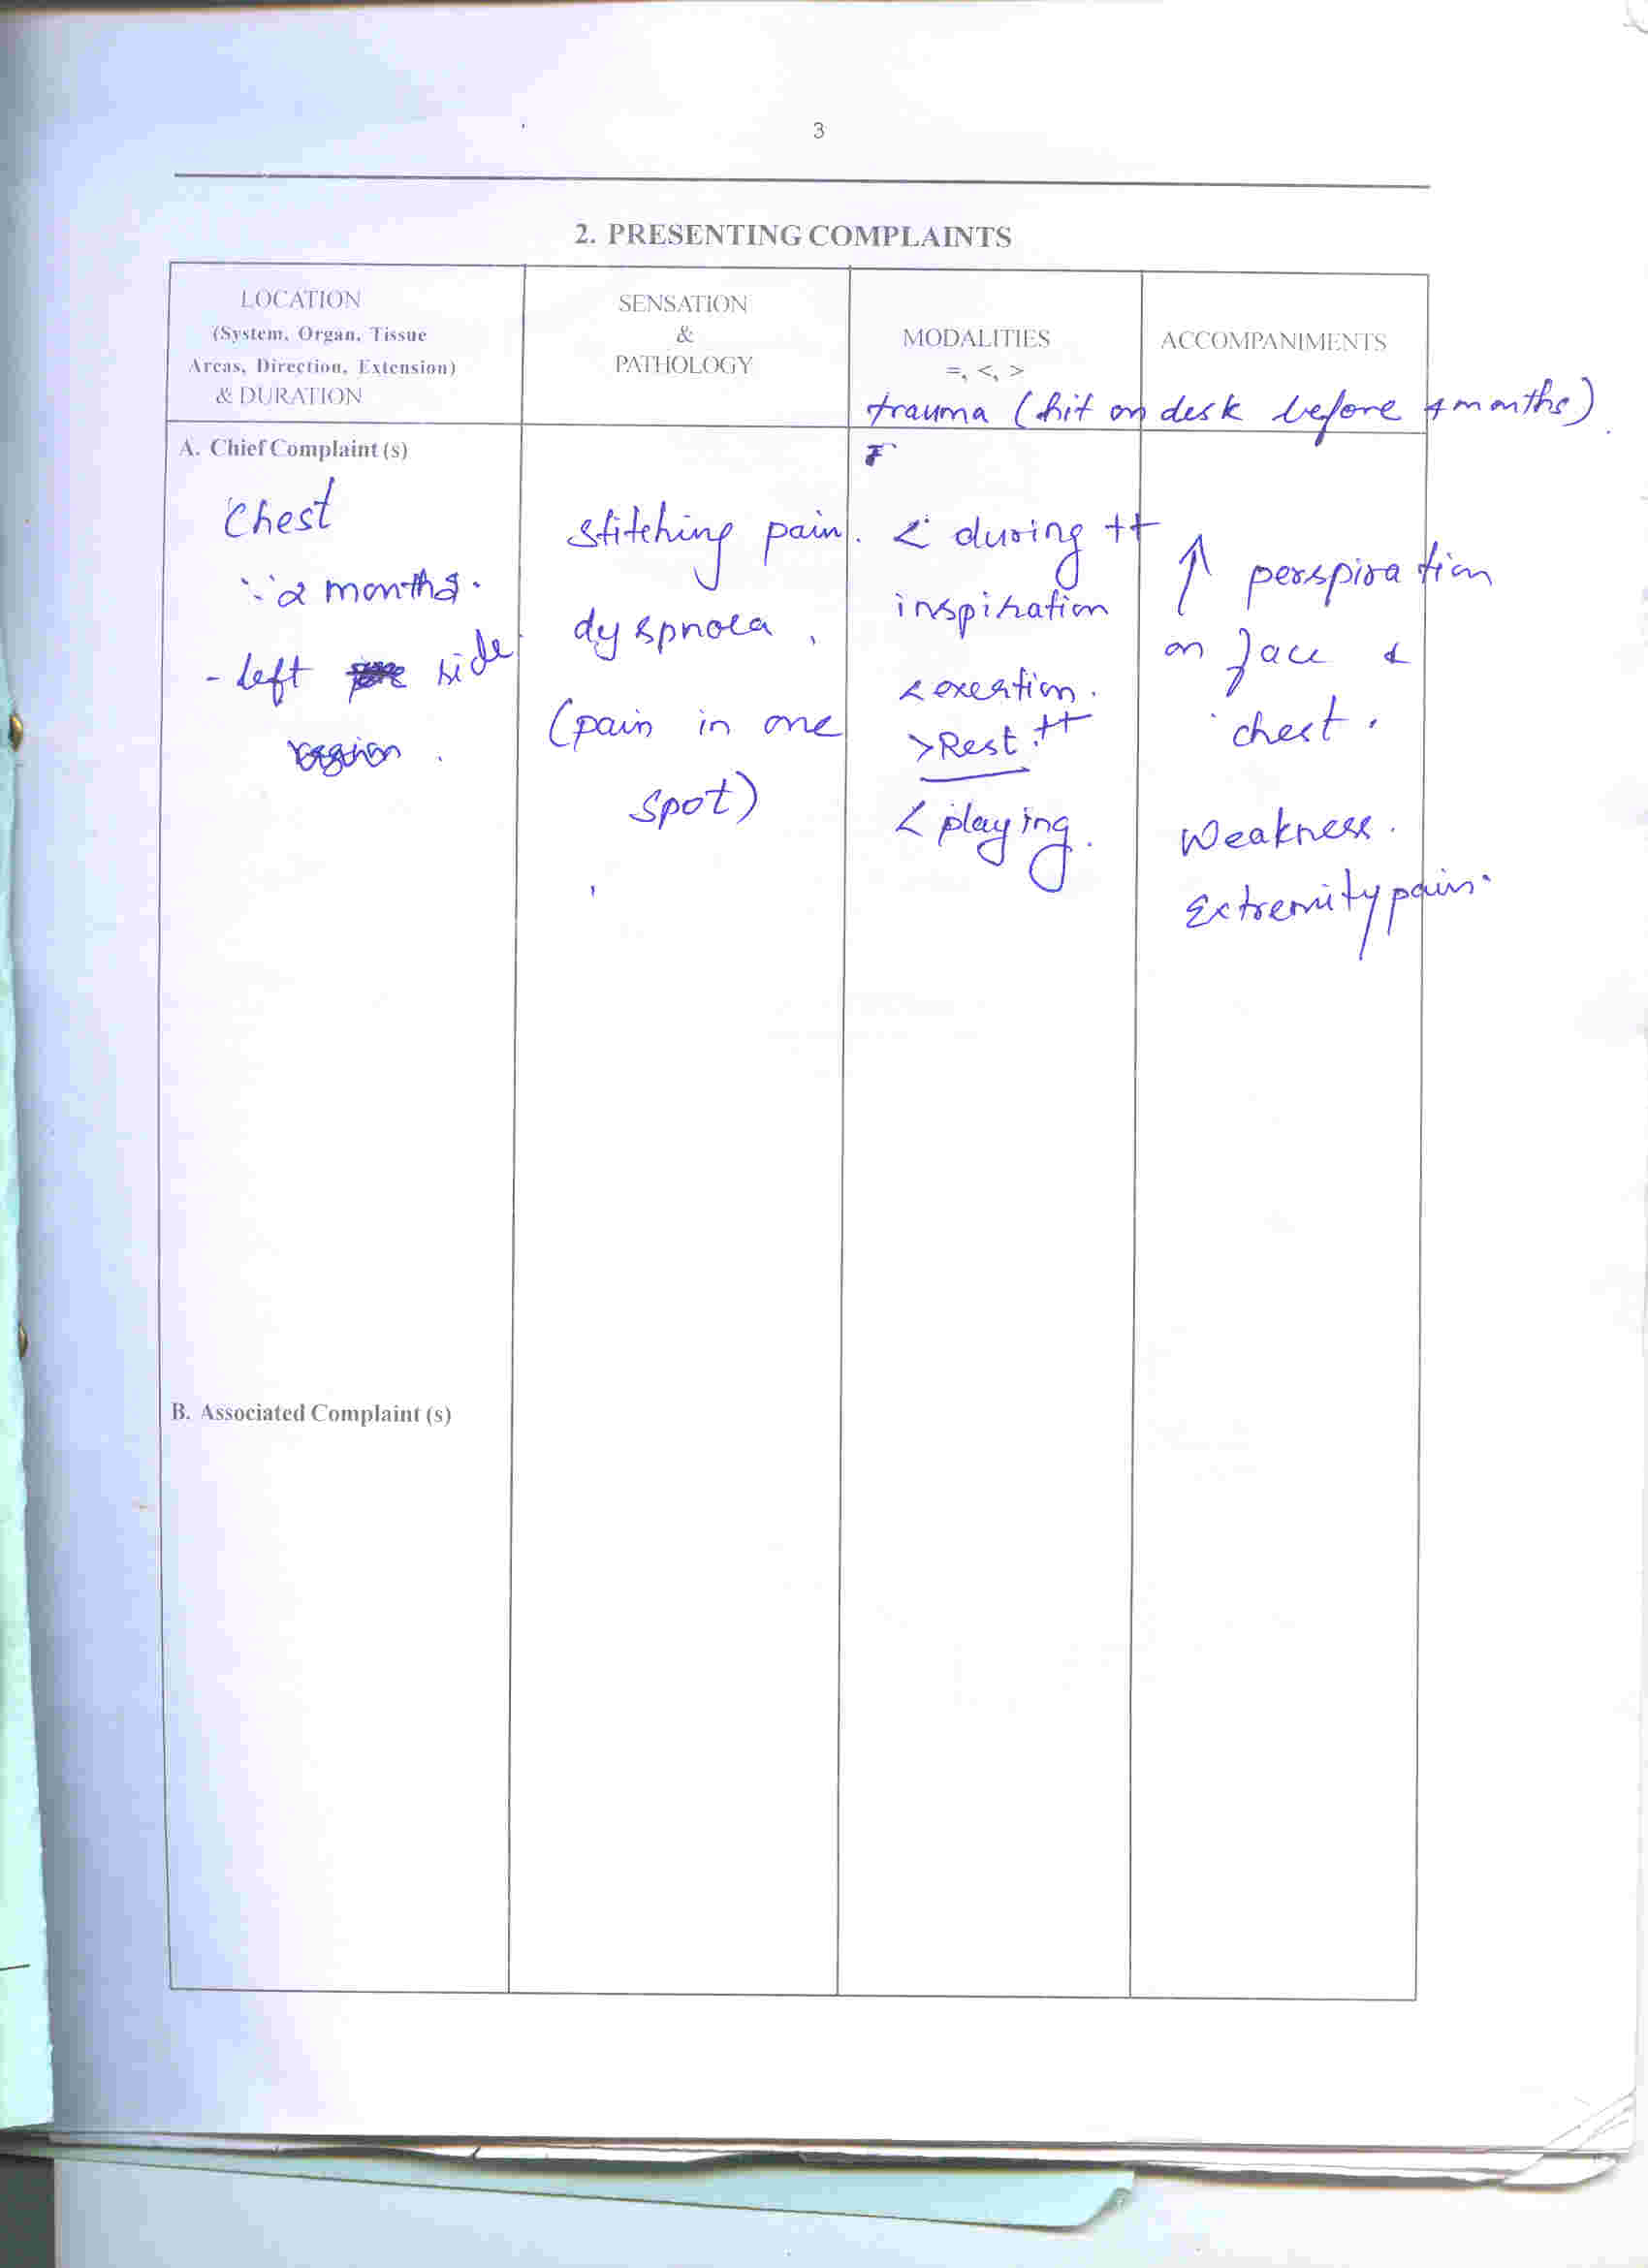 3
2. PRESENTING COMPLAINTS
LOCATION
(System, Organ, Tissue
Areas, Direction, Extension)
& DURATION
SENSATION
&
PATHOLOGY
MODALITIES
=, <, >
ACCOMPANIMENTS
trauma (hit on desk before 4 months).
A. Chief Complaint (s)
Chest
2 months.
- left side
region.
stitching pain.
dyspnoea,
(pain in one
spot)
< during ++
inspiration
< exertion.
> Rest ++
< playing.
↑ perspiration
on face &
chest.
Weakness.
Extremity pain.
B. Associated Complaint (s)